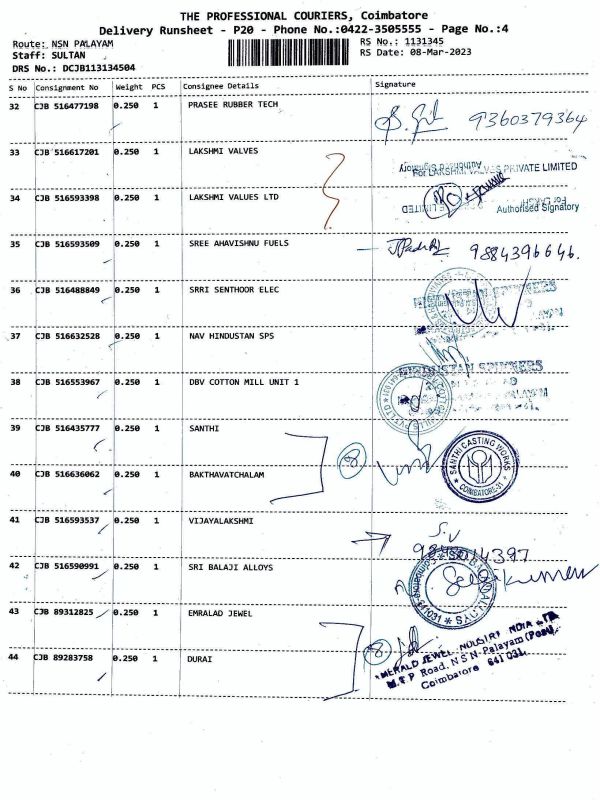 THE PROFESSIONAL COURIERS, Coimbatore
Delivery Runsheet - P20 - Phone No.:0422-3505555 - Page No.:4
Route: NSN PALAYAM
RS No.: 1131345
Staff: SULTAN
RS Date: 08-Mar-2023
DRS No.: DCJB113134504
S No Consignment No Weight PCS Consignee Details Signature
32 CJB 516477198 0.250 1 PRASEE RUBBER TECH
9360379364
33 CJB 516617201 0.250 1 LAKSHMI VALVES
For LAKSHMI VALVES PRIVATE LIMITED
Authorised Signatory
34 CJB 516593398 0.250 1 LAKSHMI VALUES LTD
For LAKSHMI
LIMITED
Authorised Signatory
35 CJB 516593509 0.250 1 SREE AHAVISHNU FUELS
9884396646.
36 CJB 516488849 0.250 1 SRRI SENTHOOR ELEC
37 CJB 516632528 0.250 1 NAV HINDUSTAN SPS
HINDUSTAN SPINNERS
38 CJB 516553967 0.250 1 DBV COTTON MILL UNIT 1
39 CJB 516435777 0.250 1 SANTHI
SANTHI CASTING WORKS
COIMBATORE-31
40 CJB 516636062 0.250 1 BAKTHAVATCHALAM
41 CJB 516593537 0.250 1 VIJAYALAKSHMI
S.V
42 CJB 516590991 0.250 1 SRI BALAJI ALLOYS
641031
43 CJB 89312825 0.250 1 EMRALAD JEWEL
44 CJB 89283758 0.250 1 DURAI
EMERALD JEWEL INDUSTRY INDIA LTD
M.T.P Road, N.S.N-Palayam (Post)
Coimbatore 641 031.